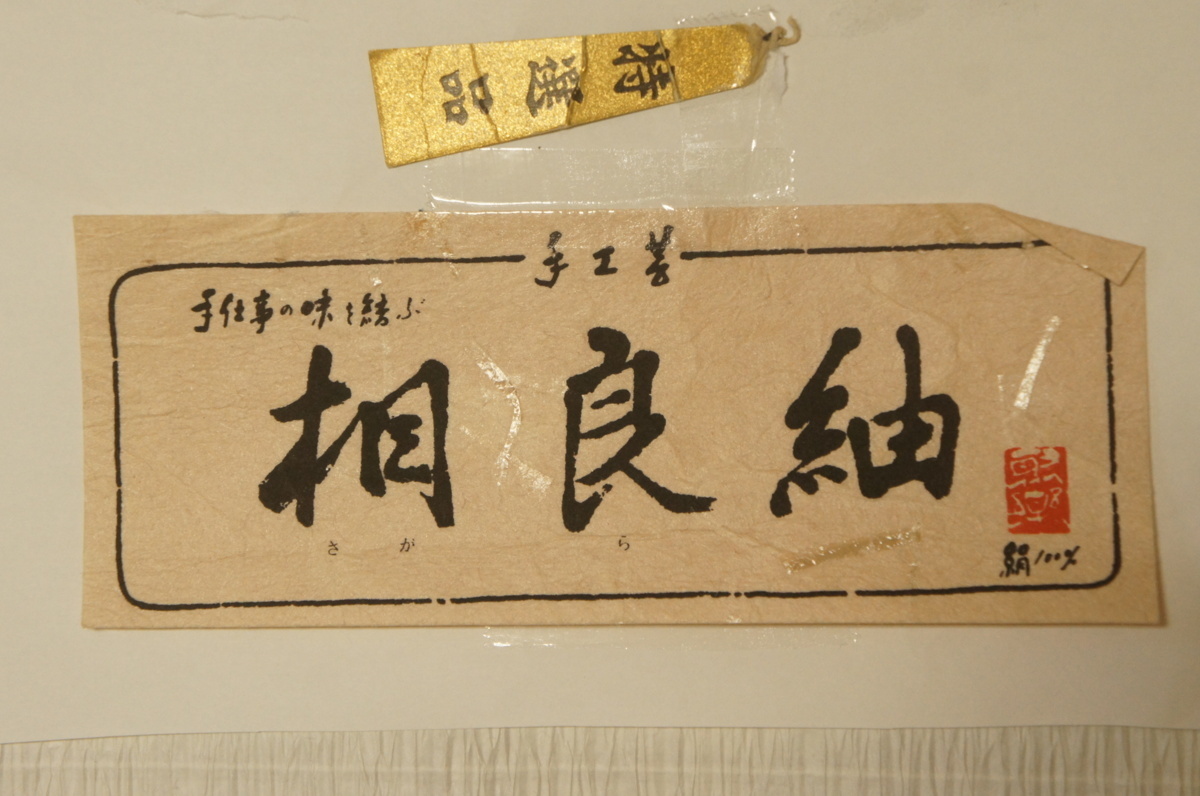 特選品
手工芸
手仕事の味を結ぶ
相良紬
さがら
絹100%